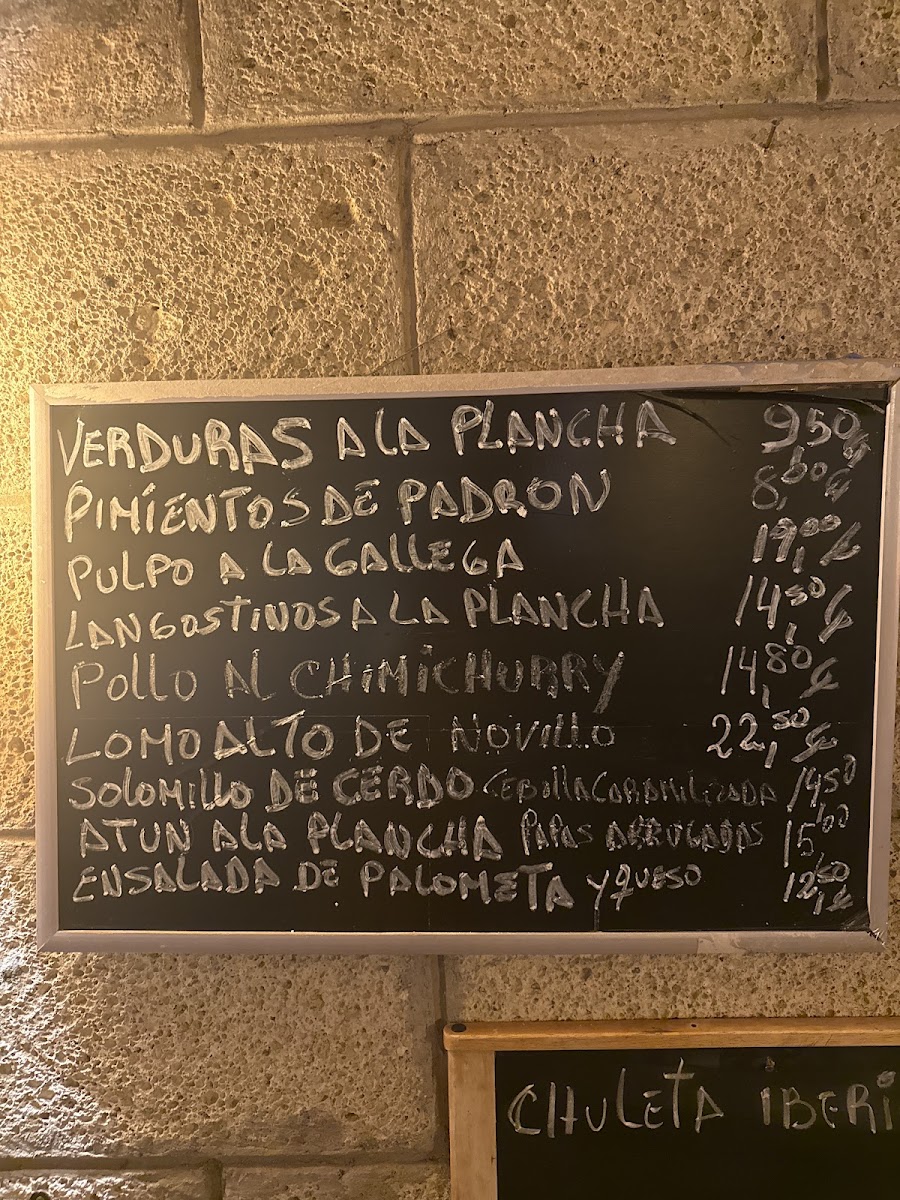 VERDURAS A LA PLANCHA 9,50€
PIMIENTOS DE PADRON 8,00€
PULPO A LA GALLEGA 19,00€
LANGOSTINOS A LA PLANCHA 14,50€
POLLO AL CHIMICHURRY 14,80€
LOMO ALTO DE NOVILLO 22,50€
SOLOMILLO DE CERDO CEBOLLA CARAMILIZADA 14,50
ATUN A LA PLANCHA PAPAS ARRUGADAS 15,00
ENSALADA DE PALOMETA Y QUESO 12,50€
CHULETA IBERI